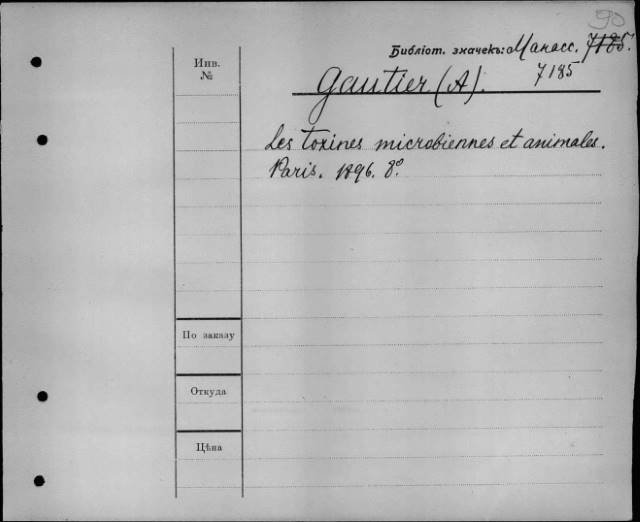 90
Библіот. значекъ: Манасс. 7185.
7185
Инв.
№
Gautier (A).
Les toxines microbiennes et animales.
Paris. 1896. 8º
По заказу
Откуда
Цѣна